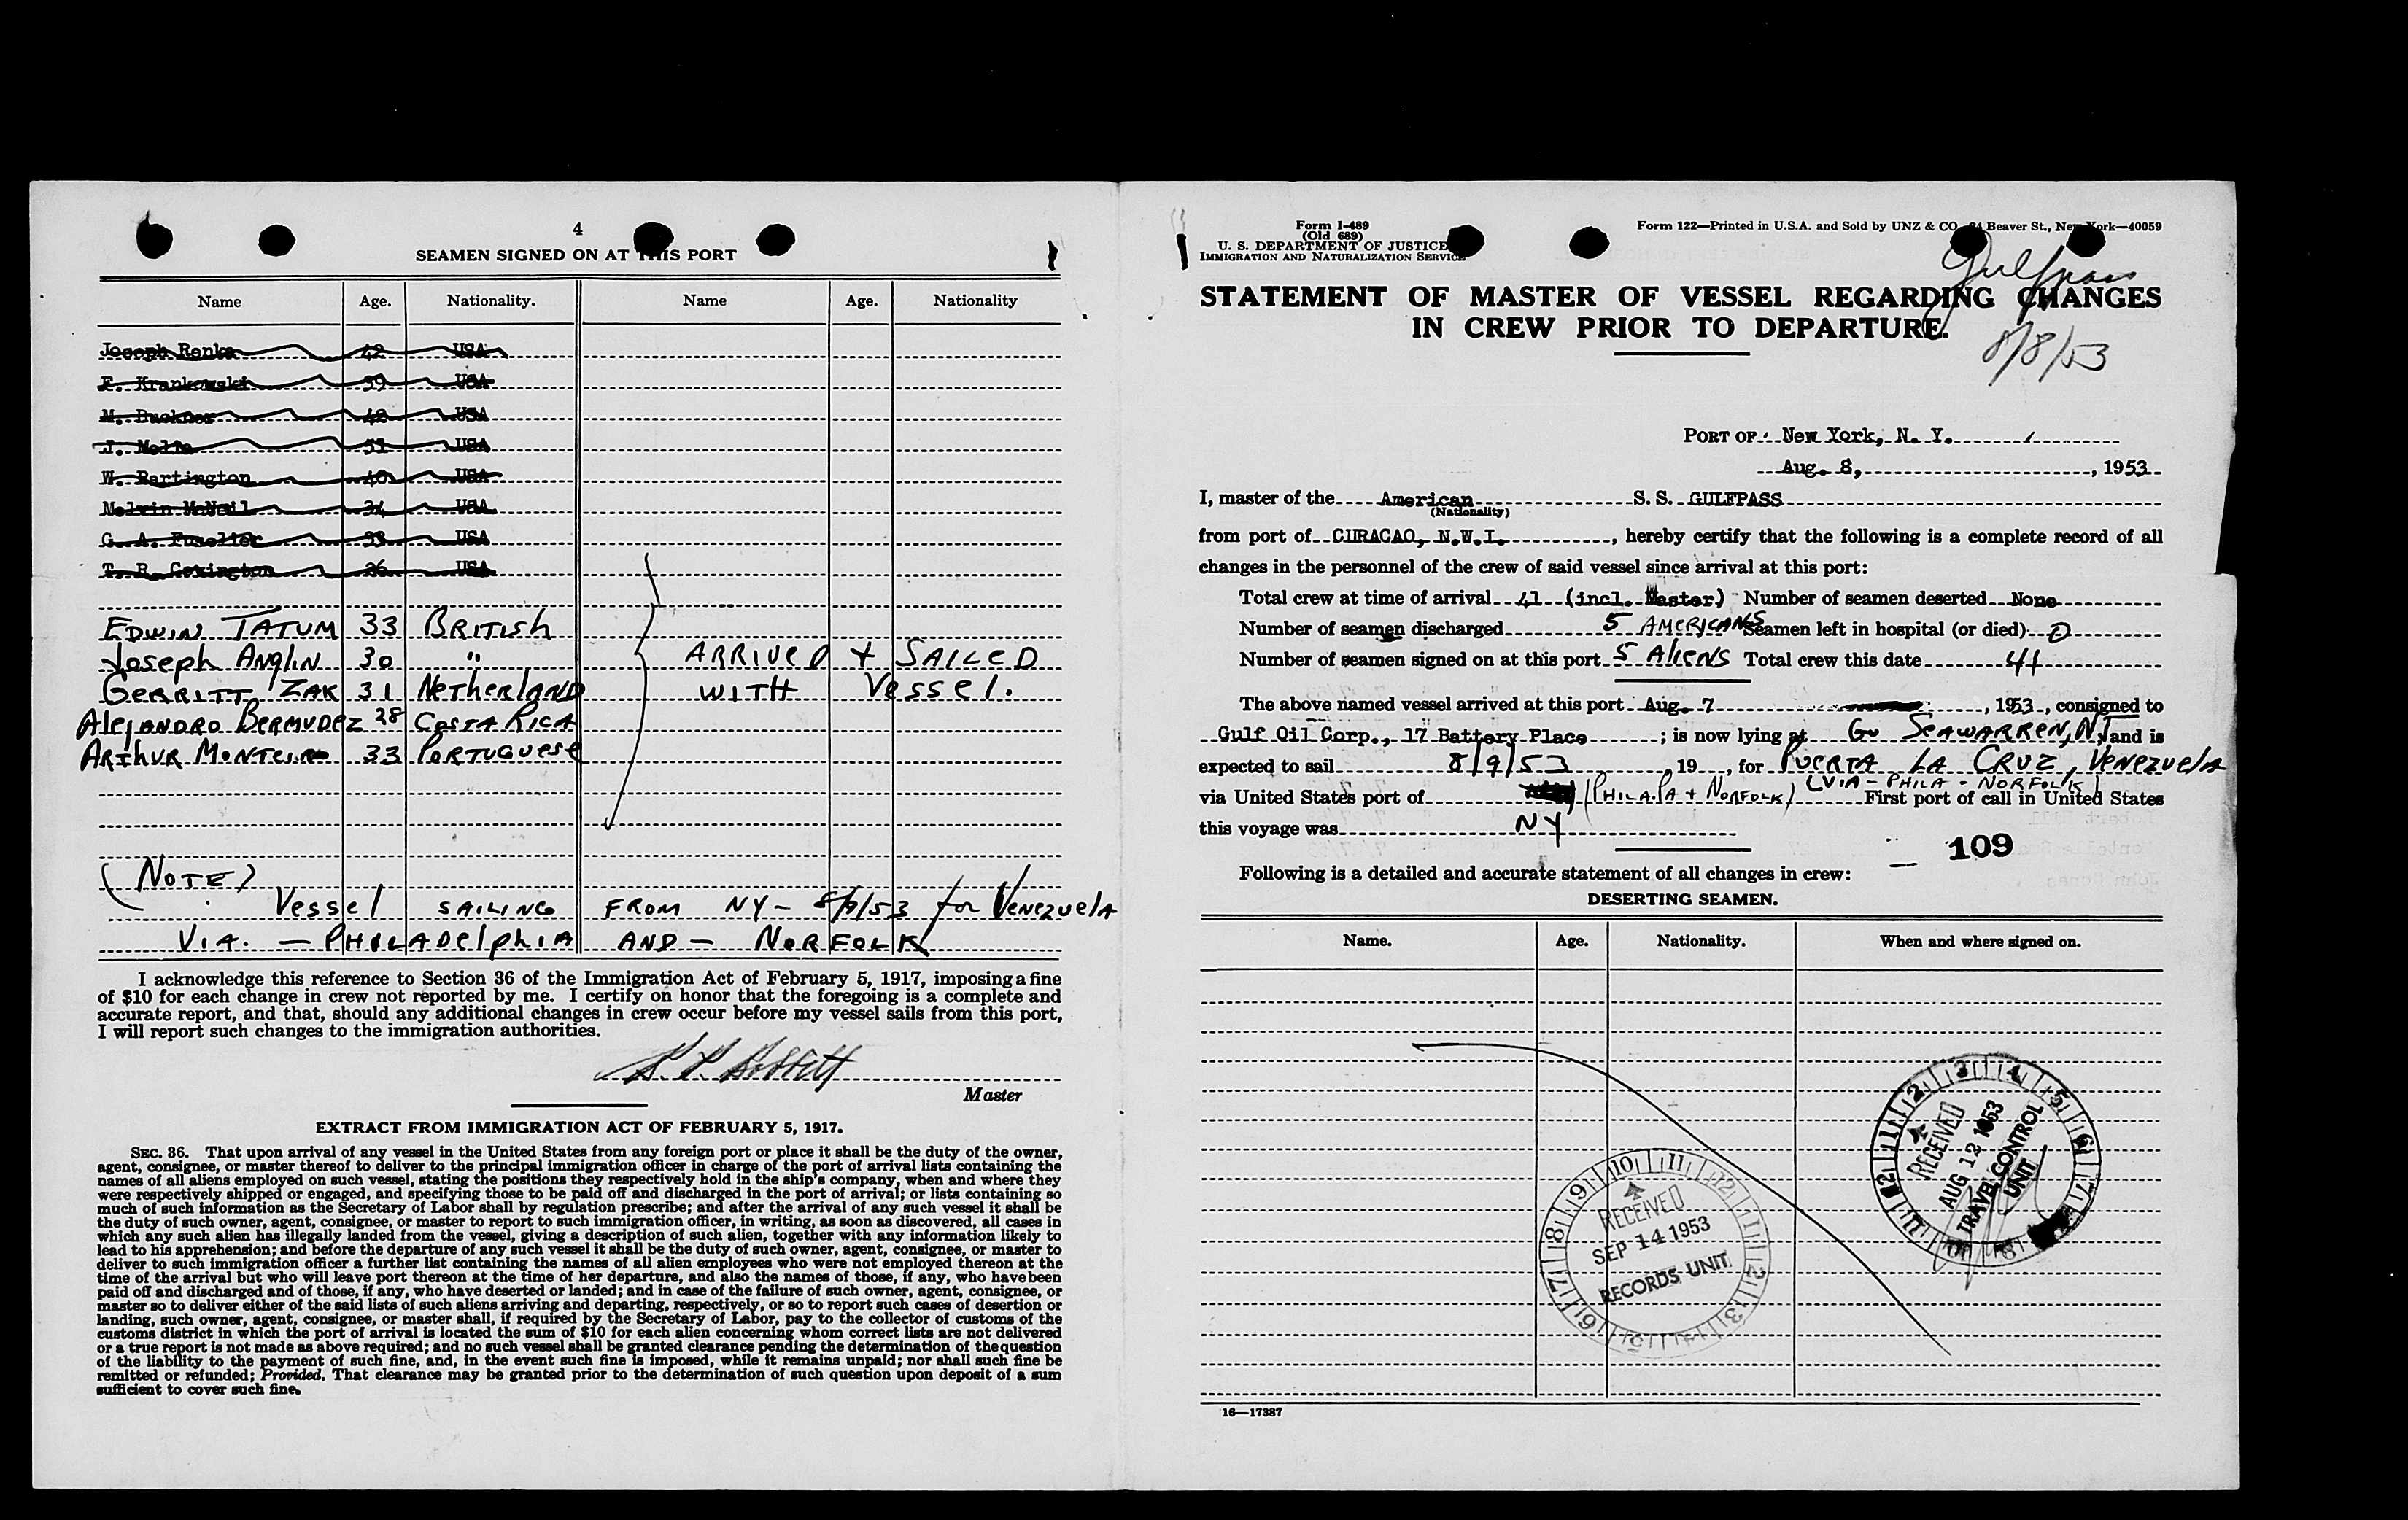 4
SEAMEN SIGNED ON AT THIS PORT
Name Age. Nationality. Name Age. Nationality
Joseph Renke 42 USA
F. Krankowski 39 USA
M. Buckner 42 USA
J. 51 USA
W. Partington 40 USA
Melvin McNeil 34 USA
G. A. Fuselier 33 USA
T. R. Covington 26 USA
EDWIN TATUM 33 BRITISH
Joseph ANGLIN 30 " ARRIVED + SAILED
GERRITT ZAK 31 NETHERLAND WITH Vessel.
AlejANDRO BERMUDEZ 28 COSTA RICA
ARTHUR MONTEIRO 33 PORTUGUESE
(NOTE)
Vessel SAILING FROM NY - 8/9/53 for VENEZUELA
VIA. - PHILADELPHIA AND - NORFOLK
I acknowledge this reference to Section 36 of the Immigration Act of February 5, 1917, imposing a fine
of $10 for each change in crew not reported by me. I certify on honor that the foregoing is a complete and
accurate report, and that, should any additional changes in crew occur before my vessel sails from this port,
I will report such changes to the immigration authorities.
Master
EXTRACT FROM IMMIGRATION ACT OF FEBRUARY 5, 1917.
SEC. 36. That upon arrival of any vessel in the United States from any foreign port or place it shall be the duty of the owner,
agent, consignee, or master thereof to deliver to the principal immigration officer in charge of the port of arrival lists containing the
names of all aliens employed on such vessel, stating the positions they respectively hold in the ship's company, when and where they
were respectively shipped or engaged, and specifying those to be paid off and discharged in the port of arrival; or lists containing so
much of such information as the Secretary of Labor shall by regulation prescribe; and after the arrival of any such vessel it shall be
the duty of such owner, agent, consignee, or master to report to such immigration officer, in writing, as soon as discovered, all cases in
which any such alien has illegally landed from the vessel, giving a description of such alien, together with any information likely to
lead to his apprehension; and before the departure of any such vessel it shall be the duty of such owner, agent, consignee, or master to
deliver to such immigration officer a further list containing the names of all alien employees who were not employed thereon at the
time of the arrival but who will leave port thereon at the time of her departure, and also the names of those, if any, who have been
paid off and discharged and of those, if any, who have deserted or landed; and in case of the failure of such owner, agent, consignee, or
master so to deliver either of the said lists of such aliens arriving and departing, respectively, or so to report such cases of desertion or
landing, such owner, agent, consignee, or master shall, if required by the Secretary of Labor, pay to the collector of customs of the
customs district in which the port of arrival is located the sum of $10 for each alien concerning whom correct lists are not delivered
or a true report is not made as above required; and no such vessel shall be granted clearance pending the determination of the question
of the liability to the payment of such fine, and, in the event such fine is imposed, while it remains unpaid; nor shall such fine be
remitted or refunded; Provided, That clearance may be granted prior to the determination of such question upon deposit of a sum
sufficient to cover such fine.
Form I-489
(Old 689)
U. S. DEPARTMENT OF JUSTICE
IMMIGRATION AND NATURALIZATION SERVICE
Form 122—Printed in U.S.A. and Sold by UNZ & CO. 24 Beaver St., New York—40059
Gulfpass
8/8/53
STATEMENT OF MASTER OF VESSEL REGARDING CHANGES
IN CREW PRIOR TO DEPARTURE.
PORT OF New York, N. Y.
Aug. 8, , 1953
I, master of the American S. S. GULFPASS
(Nationality)
from port of CURACAO, N.W.I. , hereby certify that the following is a complete record of all
changes in the personnel of the crew of said vessel since arrival at this port:
Total crew at time of arrival 41 (incl. Master) Number of seamen deserted None
Number of seamen discharged 5 AMERICANS Seamen left in hospital (or died) 0
Number of seamen signed on at this port 5 ALIENS Total crew this date 41
The above named vessel arrived at this port Aug. 7 , 1953, consigned to
Gulf Oil Corp., 17 Battery Place ; is now lying at Go SEAWARREN, NJ and is
expected to sail 8/9/53 , 19 , for PUERTA LA CRUZ, VENEZUELA
(VIA - PHILA - NORFOLK)
via United States port of (PHILA. PA + NORFOLK) First port of call in United States
this voyage was NY
109
Following is a detailed and accurate statement of all changes in crew:
DESERTING SEAMEN.
Name. Age. Nationality. When and where signed on.
RECEIVED
AUG 12 1953
TRAVEL CONTROL
UNIT
RECEIVED
SEP 14 1953
RECORDS UNIT
16—17387